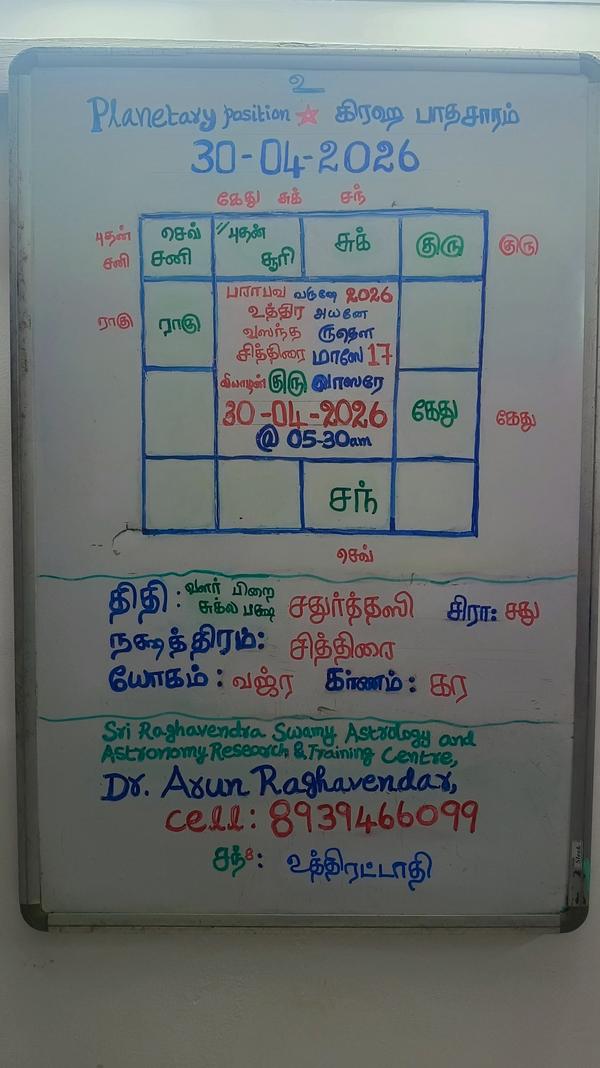 உ
Planetary position ☆ கிரஹ பாதசாரம்
30-04-2026
கேது சுக் சந்
புதன் செவ் "புதன் சுக் குரு குரு
சனி சனி சூரி
பராபவ வருஷே 2026
உத்திர அயனே
ராகு ராகு வஸந்த ருதௌ
சித்திரை மாஸே 17
வியாழன் குரு வாஸரே
30-04-2026 கேது கேது
@ 05-30am
சந்
செவ்
திதி : வளர் பிறை சதுர்த்தஸி சிரா: சது
சுக்ல பக்ஷ
நக்ஷத்திரம்: சித்திரை
யோகம் : வஜ்ர கர்ணம் : கர
Sri Raghavendra Swamy Astrology and
Astronomy Research & Training Centre,
Dr. Arun Raghavendar,
cell: 8939466099
உத்திரட்டாதி